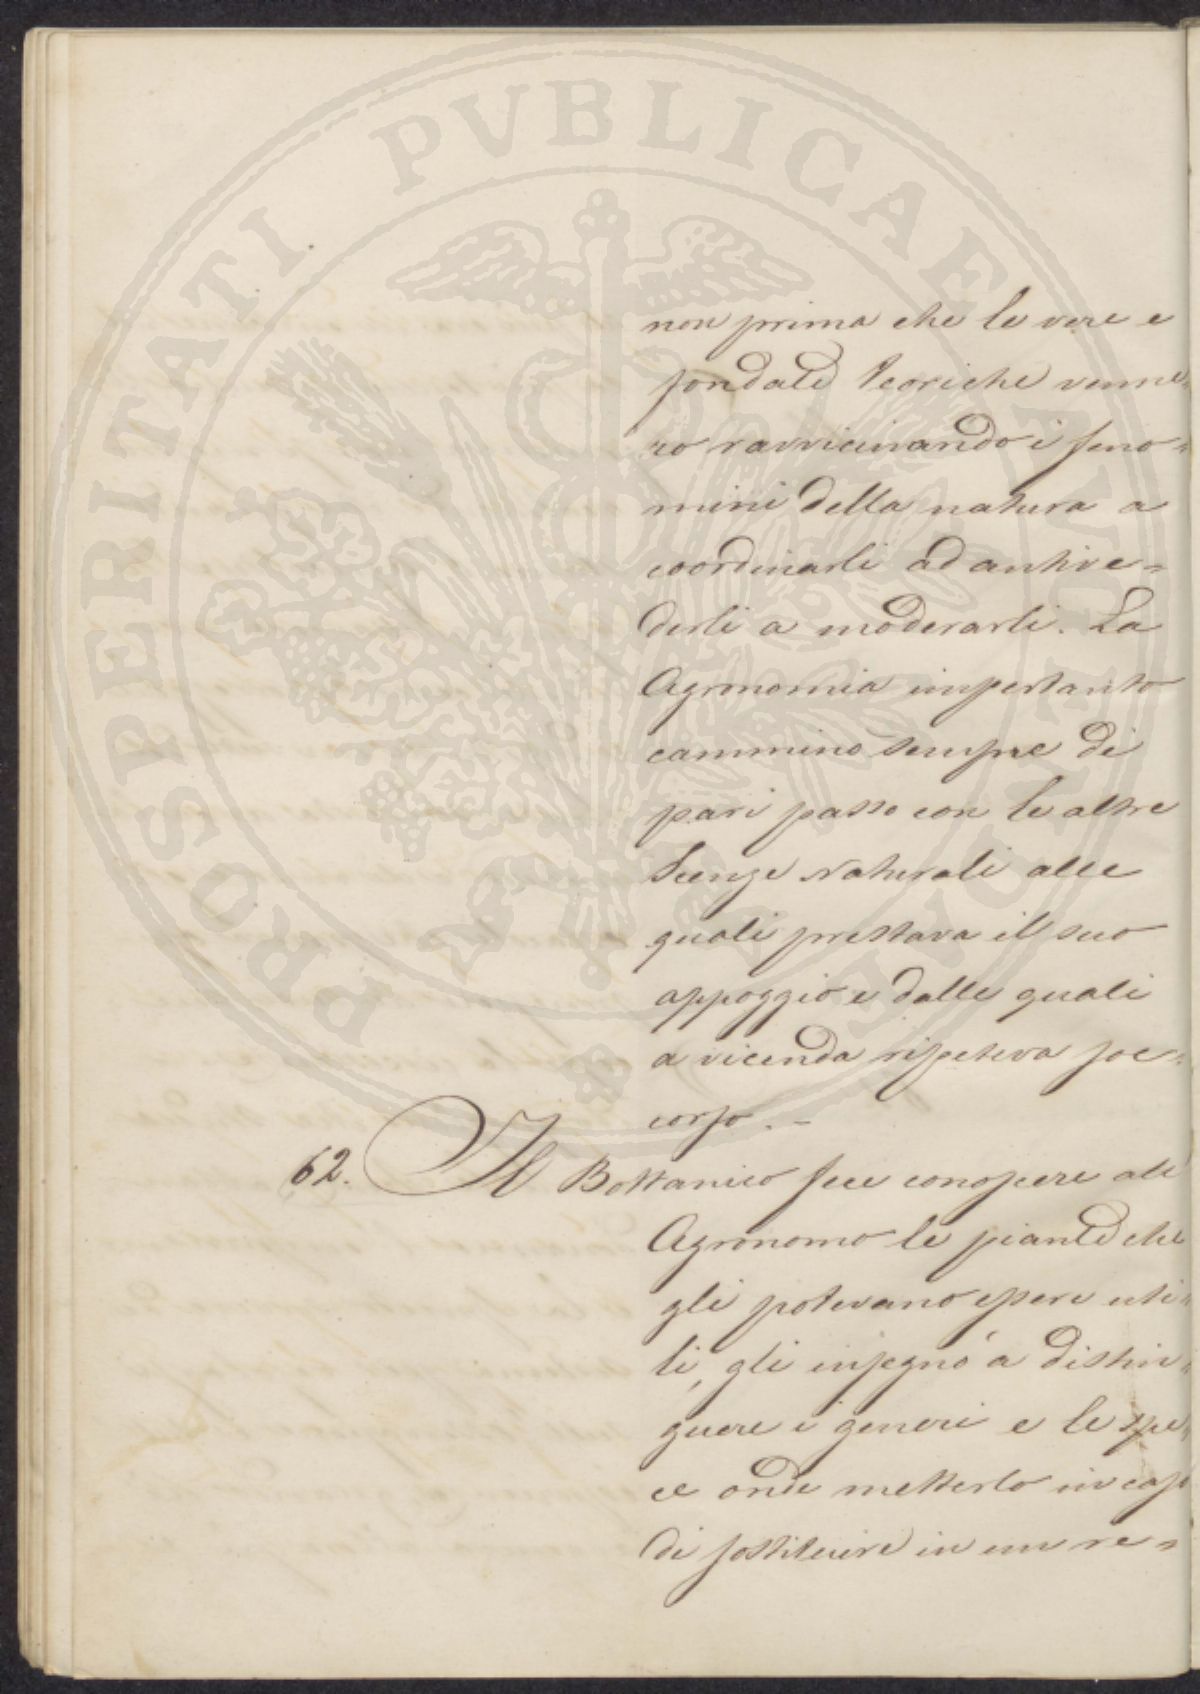 PROSPERITATI PVBLICAE AVGENDAE
non prima che le vere e
fondate teoriche venne=
ro ravvicinando i feno=
mini della natura a
coordinarli ad antive=
derli a moderarli. La
Agronomia impertanto
camminò sempre di
pari passo con le altre
Scenze Naturali alle
quali prestava il suo
appoggio e dalle quali
a vicenda ripeteva soc=
corso. –
62. Il Bottanico fece conoscere all
Agronomo le piante che
gli potevano essere uti=
li, gli insegnò a distin=
guere i generi e le spe=
ce onde metterlo in caso
di sostituire in un re=